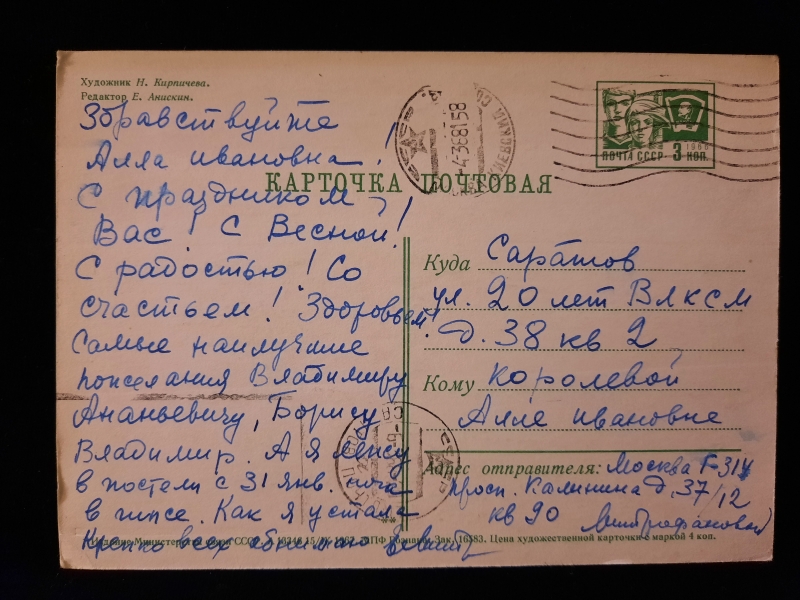 Художник Н. Кирпичева.
Редактор Е. Анискин.
Здравствуйте
Алла ивановна!
С праздником
Вас! С Весной!
С радостью! Со
счастьем! Здоровьем!
Самые наилучшие
пожелания Владимиру
Ананьевичу, Борису
Владимир. А я лежу
в постели с 31 янв. нога
в гипсе. Как я устала
Крепко всех обнимаю
ПОЧТА СССР 3 КОП.
1966
КАРТОЧКА ПОЧТОВАЯ
Куда Саратов
ул. 20 лет Влксм
д. 38 кв 2
Кому Королевой
Алле ивановне
Адрес отправителя: Москва Г-314
просп. Калинина д. 37/12
кв 90 Митрофановой
Издание Министерства связи СССР. Зак. 16583. Цена художественной карточки с маркой 4 коп.